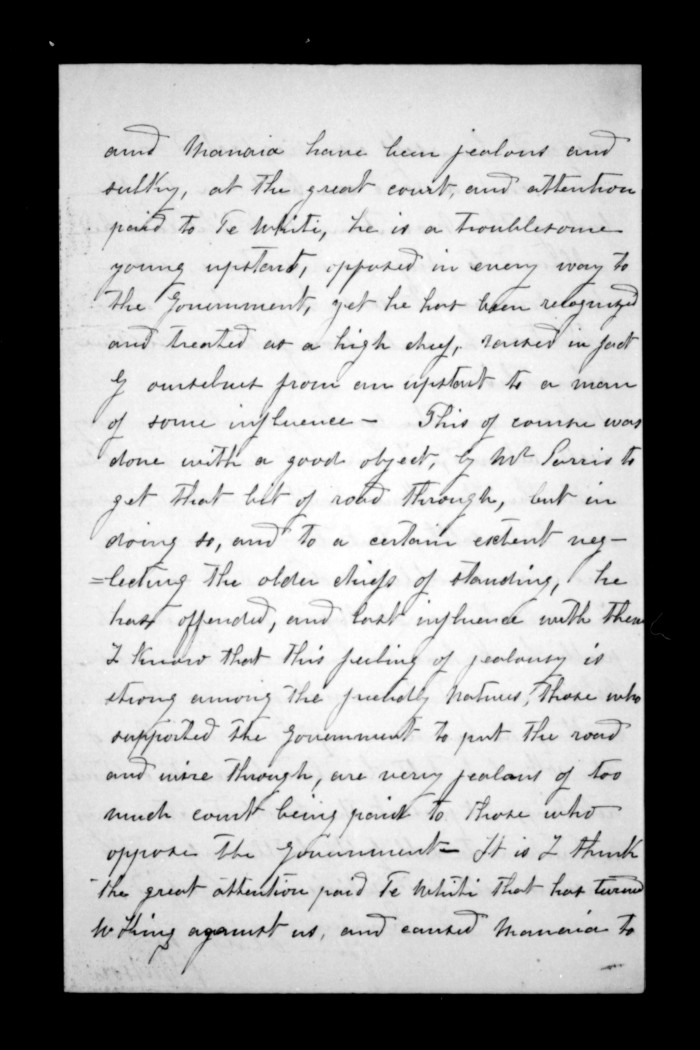 and Manaia have been jealous and
sulky, at the great court, and attention
paid to Te Whiti, he is a troublesome
young upstart, opposed in every way to
the Government, yet he has been recognized
and treated as a high chief, raised in fact
by ourselves from an upstart to a man
of some influence — This of course was
done with a good object, by Mr Parris to
get that bit of road through, but in
doing so, and to a certain extent neg-
=lecting the older chiefs of standing, he
has offended, and lost influence with them
I know that this feeling of jealousy is
strong among the friendly Natives, those who
supported the Government to put the road
and wire through, are very jealous of too
much court being paid to those who
oppose the Government — It is I think
the great attention paid Te Whiti that has turned
W King against us, and caused Manaia to